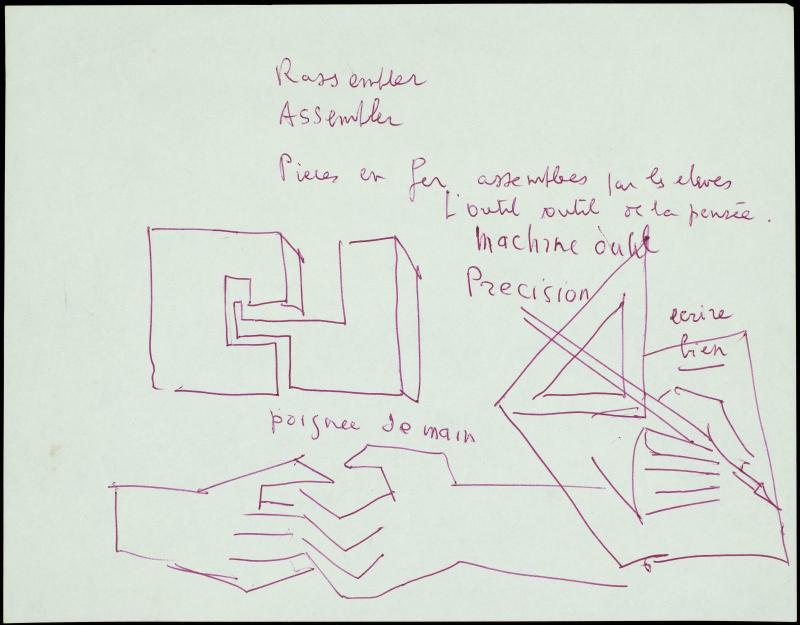 Rassembler
Assembler
Pieces en fer assemblées par les eleves
L'outil outil de la pensée.
machine outil
Precision
ecrire
bien
poignee de main